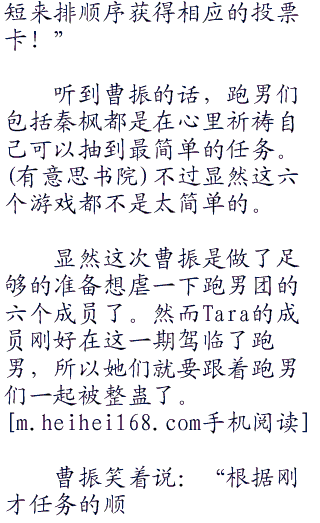 短来排顺序获得相应的投票
卡！”
听到曹振的话，跑男们
包括秦枫都是在心里祈祷自
己可以抽到最简单的任务。
(有意思书院)不过显然这六
个游戏都不是太简单的。
显然这次曹振是做了足
够的准备想虐一下跑男团的
六个成员了。然而Tara的成
员刚好在这一期驾临了跑
男，所以她们就要跟着跑男
们一起被整蛊了。
[m.heihei168.com手机阅读]
曹振笑着说：“根据刚
才任务的顺